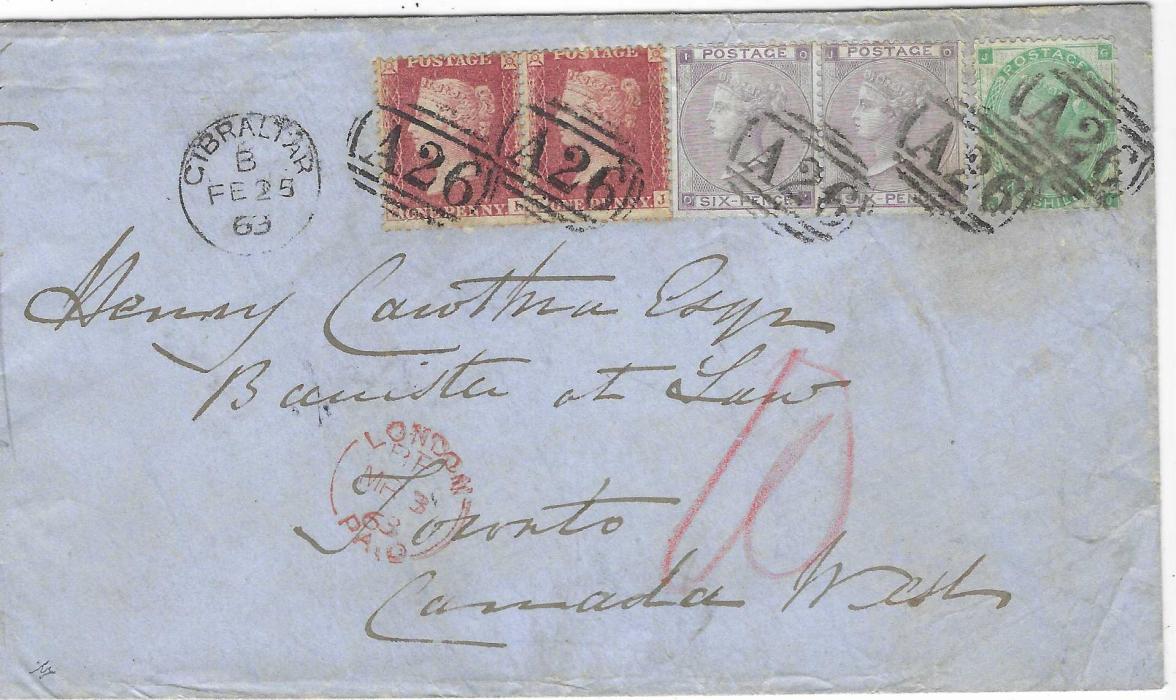 POSTAGE POSTAGE POSTAGE POSTAGE POSTAGE
ONE PENNY ONE PENNY J SIX-PENCE SIX-PEN SHILL
A26 A26 A26 A26 A26
GIBRALTAR
B
FE 25
63
Henry Cawthra Esqr
Barrister at Law
LONDON
MR 3
63
PAID
Toronto
Canada West
10